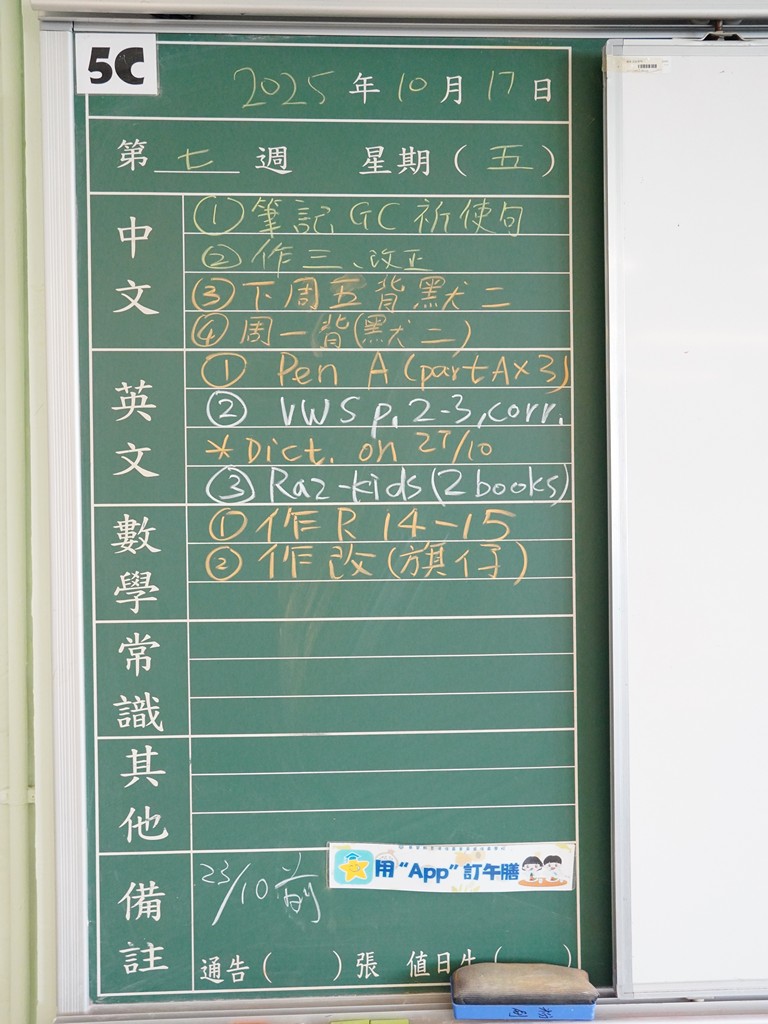 5C
2025年10月17日
第七週 星期（五）
中文
①筆記GC祈使句
②作三、改正
③下周五背默二
④周一背(默二)
英文
① Pen A (part A×3)
② VWS p.2-3, corr.
*Dict. on 27/10
③ Raz-kids (2 books)
數學
①作R 14-15
②作改(旗仔)
常識
其他
備註
23/10前
用“App”訂午膳
通告（ ）張 值日生（ ）